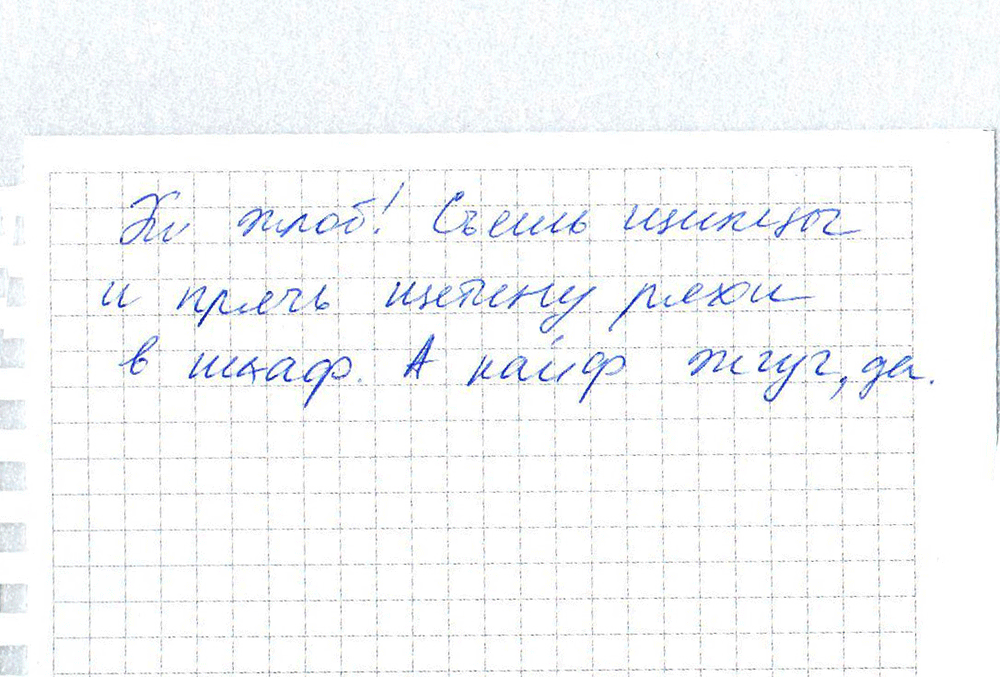 Эх жлоб! Съешь щипцы
и прячь щетину плехи
в шкаф. А кайф жгуч, да.